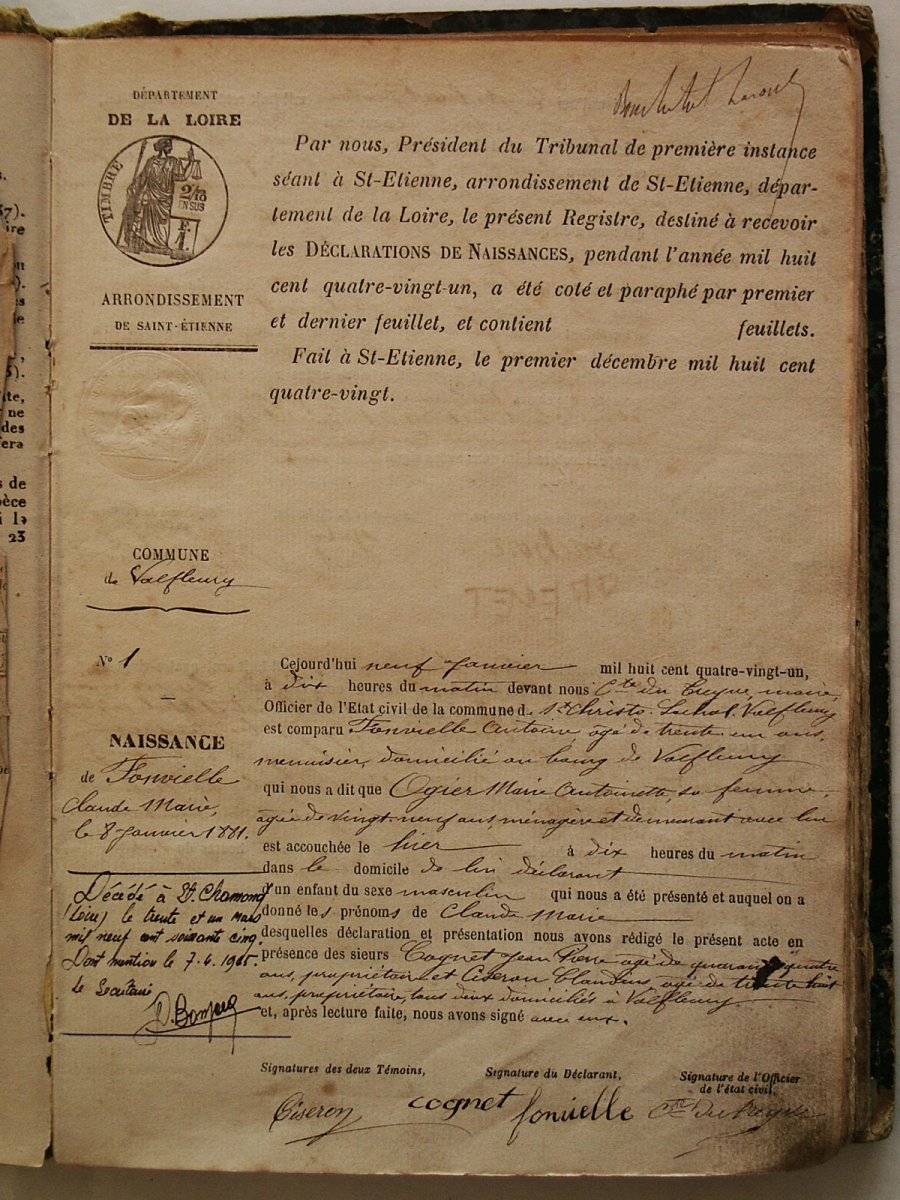 DÉPARTEMENT
DE LA LOIRE
TIMBRE
2/10
EN SUS
F.
1.
ARRONDISSEMENT
DE SAINT-ÉTIENNE
Par nous, Président du Tribunal de première instance
séant à St-Etienne, arrondissement de St-Etienne, dépar-
tement de la Loire, le présent Registre, destiné à recevoir
les DÉCLARATIONS DE NAISSANCES, pendant l'année mil huit
cent quatre-vingt-un, a été coté et paraphé par premier
et dernier feuillet, et contient feuillets.
Fait à St-Etienne, le premier décembre mil huit cent
quatre-vingt.
COMMUNE
de Valfleury
N° 1
NAISSANCE
de Fonvielle
Claude Marie,
le 8 Janvier 1881.
Décédé à St. Chamond
(Loire) le trente et un Mars
mil neuf cent soixante cinq.
Dont mention le 7.4.1965
Le Secrétaire
Cejourd'hui neuf Janvier mil huit cent quatre-vingt-un,
à dix heures du matin devant nous Cte du maire,
Officier de l'Etat civil de la commune d. St Christo. Lachal. Valfleury
est comparu Fonvielle Antoine agé de trente un ans,
menuisier, domicilié au bourg de Valfleury
qui nous a dit que Ogier Marie Antoinette, sa femme,
agée de vingt-neuf ans, ménagère et demeurant avec lui
est accouchée le hier à dix heures du matin
dans le domicile de lui déclarant
d'un enfant du sexe masculin qui nous a été présenté et auquel on a
donné les prénoms de Claude Marie
desquelles déclaration et présentation nous avons rédigé le présent acte en
présence des sieurs Cognet Jean Pierre agé de quarante quatre
ans, propriétaire et Ciseron Claudius agé de trente huit
ans, propriétaire, tous deux domiciliés à Valfleury
et, après lecture faite, nous avons signé avec eux.
Signatures des deux Témoins, Signature du Déclarant, Signature de l'Officier
de l'état civil,
Ciseron cognet fonvielle